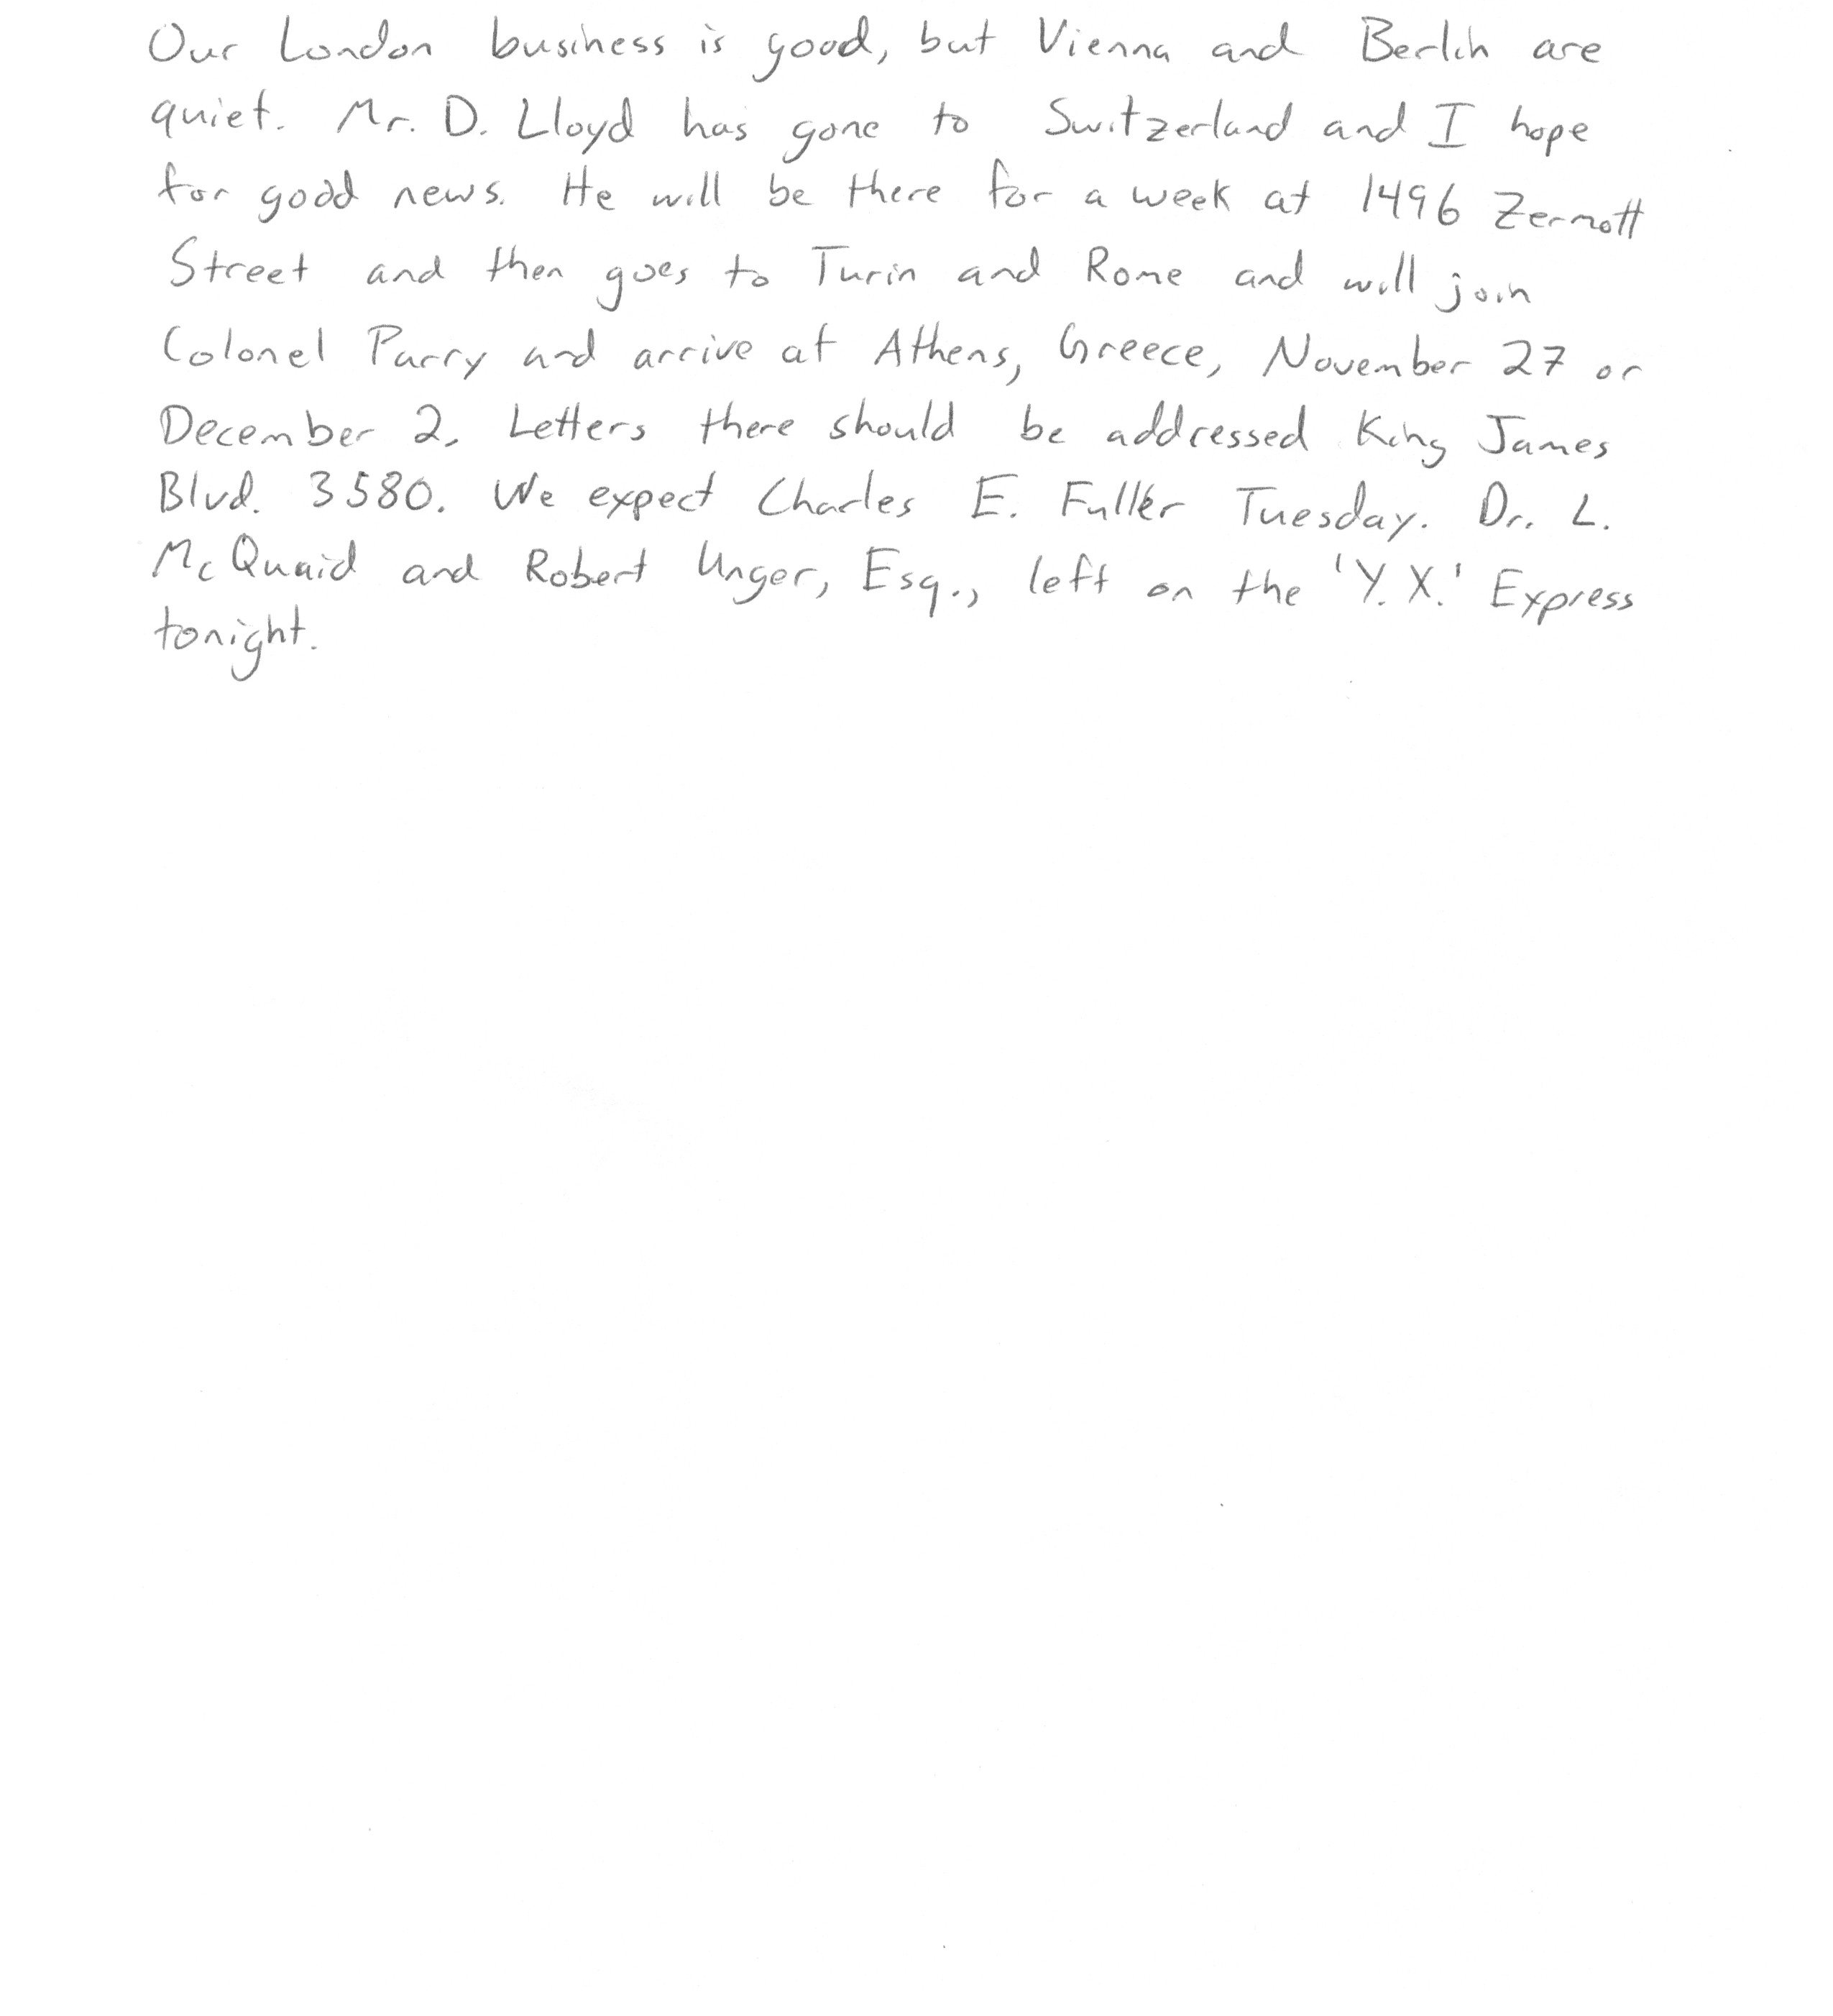 Our London business is good, but Vienna and Berlin are
quiet. Mr. D. Lloyd has gone to Switzerland and I hope
for good news. He will be there for a week at 1496 Zermott
Street and then goes to Turin and Rome and will join
Colonel Parry and arrive at Athens, Greece, November 27 or
December 2. Letters there should be addressed King James
Blvd. 3580. We expect Charles E. Fuller Tuesday. Dr. L.
McQuaid and Robert Unger, Esq., left on the 'Y.X.' Express
tonight.